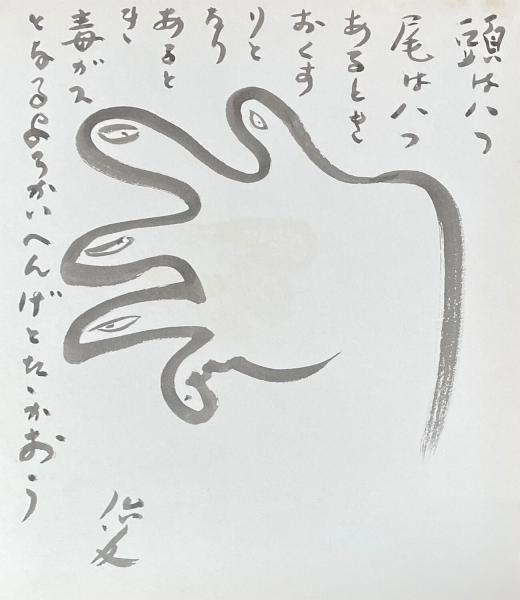 頭は八つ
尾は八つ
あるとき
おくす
りと
なり
あると
き
毒ガス
となるようかいへんげとたゝかおう